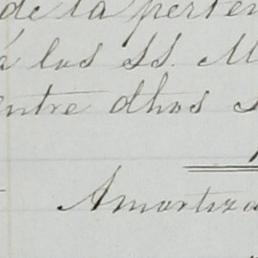 de la perten
á los SS. M
entre dhos S
Amortiza